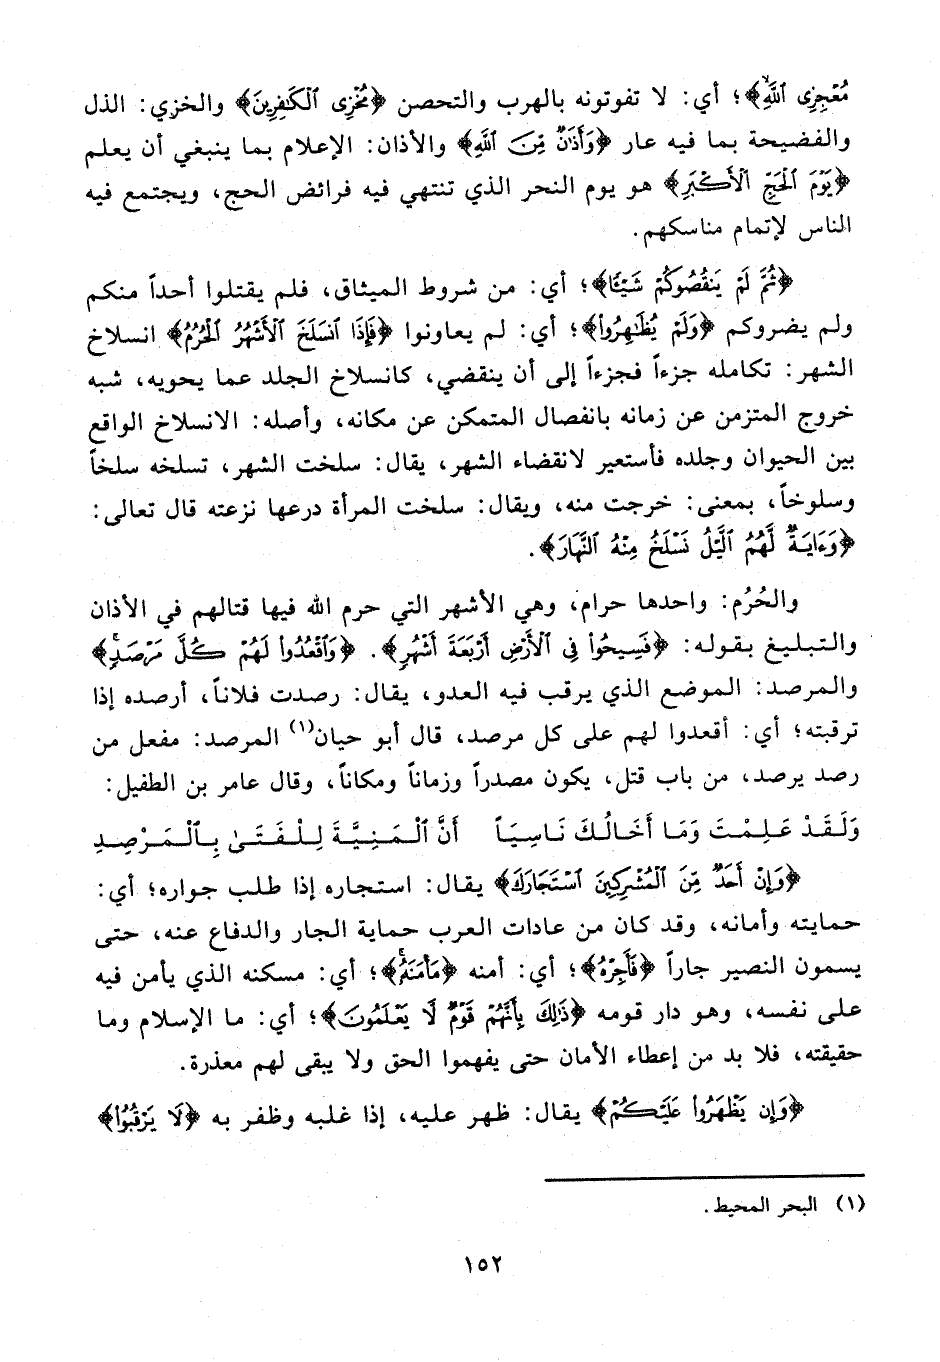 مُعْجِزِى ٱللَّهِۙ﴾؛ أي: لا تفوتونه بالهرب والتحصن ﴿مُخْزِى ٱلْكَٰفِرِينَ﴾ والخزي: الذل
والفضيحة بما فيه عار ﴿وَأَذَٰنٌ مِّنَ ٱللَّهِ﴾ والأذان: الإعلام بما ينبغي أن يعلم
﴿يَوْمَ ٱلْحَجِّ ٱلْأَكْبَرِ﴾ هو يوم النحر الذي تنتهي فيه فرائض الحج، ويجتمع فيه
الناس لإتمام مناسكهم.
﴿ثُمَّ لَمْ يَنقُصُوكُمْ شَيْـًٔا﴾؛ أي: من شروط الميثاق، فلم يقتلوا أحداً منكم
ولم يضروكم ﴿وَلَمْ يُظَٰهِرُوا۟﴾؛ أي: لم يعاونوا ﴿فَإِذَا ٱنسَلَخَ ٱلْأَشْهُرُ ٱلْحُرُمُ﴾ انسلاخ
الشهر: تكامله جزءاً فجزءاً إلى أن ينقضي، كانسلاخ الجلد عما يحويه، شبه
خروج المتزمن عن زمانه بانفصال المتمكن عن مكانه، وأصله: الانسلاخ الواقع
بين الحيوان وجلده فأستعير لانقضاء الشهر، يقال: سلخت الشهر، تسلخه سلخاً
وسلوخاً، بمعنى: خرجت منه، ويقال: سلخت المرأة درعها نزعته قال تعالى:
﴿وَءَايَةٌ لَّهُمُ ٱلَّيْلُ نَسْلَخُ مِنْهُ ٱلنَّهَارَ﴾.
والحُرُم: واحدها حرام، وهي الأشهر التي حرم الله فيها قتالهم في الأذان
والتبليغ بقوله: ﴿فَسِيحُوا۟ فِى ٱلْأَرْضِ أَرْبَعَةَ أَشْهُرٍ﴾. ﴿وَٱقْعُدُوا۟ لَهُمْ كُلَّ مَرْصَدٍۚ﴾
والمرصد: الموضع الذي يرقب فيه العدو، يقال: رصدت فلاناً، أرصده إذا
ترقبته؛ أي: أقعدوا لهم على كل مرصد، قال أبو حيان(١) المرصد: مفعل من
رصد يرصد، من باب قتل، يكون مصدراً وزماناً ومكاناً، وقال عامر بن الطفيل:
وَلَقَدْ عَلِمْتَ وَمَا أَخَالُكَ نَاسِيَاً أَنَّ ٱلْمَنِيَّةَ لِلْفَتَىٰ بِٱلْمَرْصِدِ
﴿وَإِنْ أَحَدٌ مِّنَ ٱلْمُشْرِكِينَ ٱسْتَجَارَكَ﴾ يقال: استجاره إذا طلب جواره؛ أي:
حمايته وأمانه، وقد كان من عادات العرب حماية الجار والدفاع عنه، حتى
يسمون النصير جاراً ﴿فَأَجِرْهُ﴾؛ أي: أمنه ﴿مَأْمَنَهُۥۚ﴾؛ أي: مسكنه الذي يأمن فيه
على نفسه، وهو دار قومه ﴿ذَٰلِكَ بِأَنَّهُمْ قَوْمٌ لَّا يَعْلَمُونَ﴾؛ أي: ما الإسلام وما
حقيقته، فلا بد من إعطاء الأمان حتى يفهموا الحق ولا يبقى لهم معذرة.
﴿وَإِن يَظْهَرُوا۟ عَلَيْكُمْ﴾ يقال: ظهر عليه، إذا غلبه وظفر به ﴿لَا يَرْقُبُوا۟﴾
(١) البحر المحيط.
١٥٢